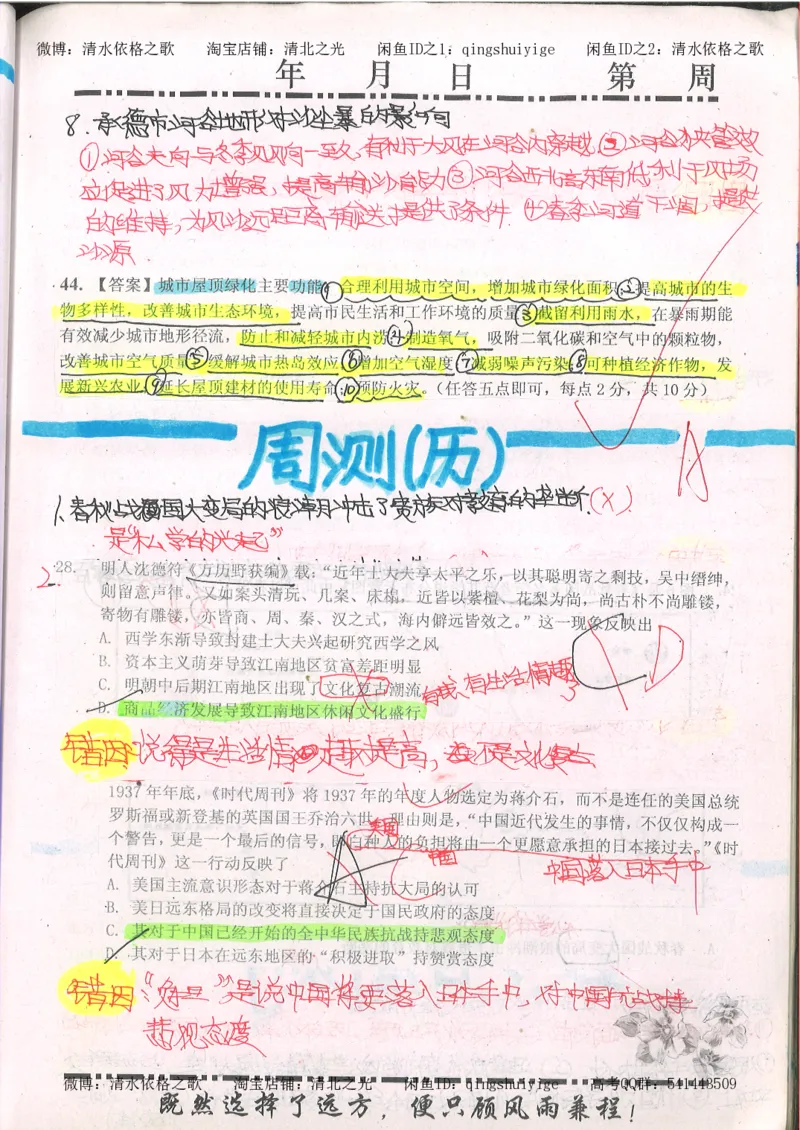 微博：清水依格之歌 淘宝店铺：清北之光 闲鱼ID之1：qingshuiyige 闲鱼ID之2：清水依格之歌
年 月 日 第 周
8.承德市河谷地形对沙尘暴的影响
①河谷走向与冬季风风向一致，有利于大风在河谷内穿越。②河谷狭管效
应促进了风力增强，提高输沙能力③河谷西北高东南低利于风场
的维持，为风沙远距离输送提供了条件 ④春季河道干涸，提供
沙源.
44.【答案】城市屋顶绿化主要功能①合理利用城市空间，增加城市绿化面积②提高城市的生
物多样性，改善城市生态环境，提高市民生活和工作环境的质量③截留利用雨水，在暴雨期能
有效减少城市地形径流，防止和减轻城市内涝④制造氧气，吸附二氧化碳和空气中的颗粒物，
改善城市空气质量⑤缓解城市热岛效应⑥增加空气湿度⑦减弱噪声污染⑧可种植经济作物，发
展新兴农业⑨延长屋顶建材的使用寿命⑩预防火灾。（任答五点即可，每点2分，共10分）
周测(历)
1.春秋战国大变局的浪潮冲击了贵族对教育的垄断.(×)
是“私学的兴起”
2. 28. 明人沈德符《万历野获编》载：“近年士大夫享太平之乐，以其聪明寄之剩技，吴中缙绅，
则留意声律。又如案头清玩、几案、床榻，近皆以紫檀、花梨为尚，尚古朴不尚雕镂，
寄物有雕镂，亦皆商、周、秦、汉之式，海内僻远皆效之。”这一现象反映出
A. 西学东渐导致封建士大夫兴起研究西学之风
B. 资本主义萌芽导致江南地区贫富差距明显
C. 明朝中后期江南地区出现了文化复古潮流
有钱、有生活情趣
D. 商品经济发展导致江南地区休闲文化盛行
错因：说得是生活情趣提高，不是文化复古
1937年年底，《时代周刊》将1937年的年度人物选定为蒋介石，而不是连任的美国总统
罗斯福或新登基的英国国王乔治六世。理由则是，“中国近代发生的事情，不仅仅构成一
美国
个警告，更是一个最后的信号，即白种人的负担将由一个更愿意承担的日本接过去。”《时
中国 中国落入日本手中
代周刊》这一行动反映了
A. 美国主流意识形态对于蒋介石主持抗大局的认可
B. 美日远东格局的改变将直接决定于国民政府的态度
C. 其对于中国已经开始的全中华民族抗战持悲观态度
D. 其对于日本在远东地区的“积极进取”持赞赏态度
错因：“负担”是说中国将要落入日本手中，对中国抗战持
悲观态度
微博：清水依格之歌 淘宝店铺：清北之光 闲鱼ID：qingshuiyige 高考QQ群：541443509
既然选择了远方，便只顾风雨兼程！